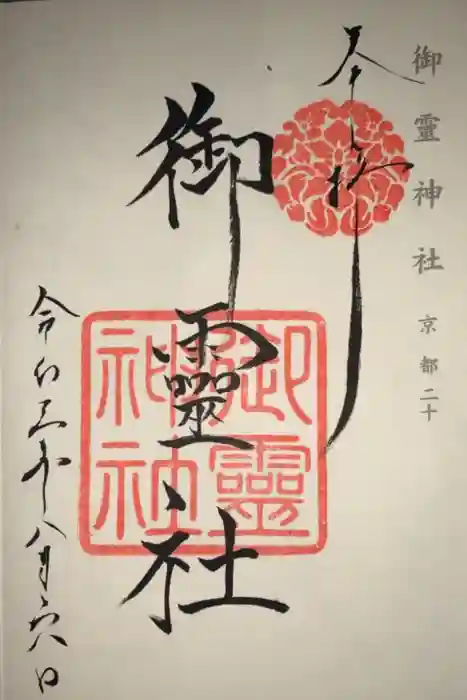 御靈神社
京都二十
奉拝
御靈社
御靈神社
令和三年八月六日